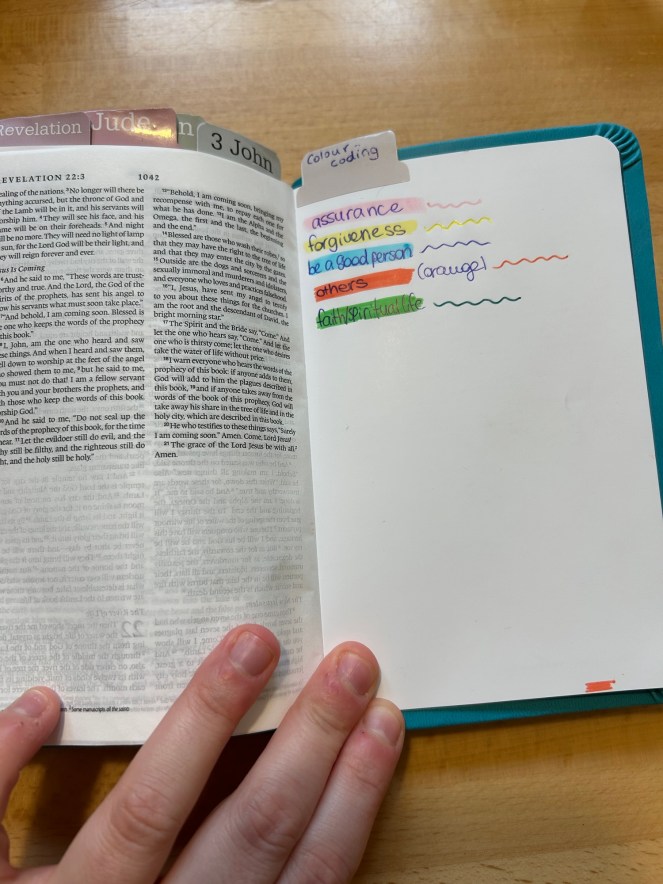 Revelation
Jude
n
3 John
EVELATION 22:3
1042
ealing of the nations. 3No longer will there be
ything accursed, but the throne of God and
the Lamb will be in it, and his servants will
orship him. 4They will see his face, and his
ame will be on their foreheads. 5And night
ill be no more. They will need no light of lamp
sun, for the Lord God will be their light, and
ey will reign forever and ever.
sus Is Coming
6And he said to me, "These words are trust-
orthy and true. And the Lord, the God of the
irits of the prophets, has sent his angel to
ow his servants what must soon take place."
7"And behold, I am coming soon. Blessed is
e one who keeps the words of the prophecy
this book."
8I, John, am the one who heard and saw
ese things. And when I heard and saw them,
ell down to worship at the feet of the angel
o showed them to me, 9but he said to me,
ou must not do that! I am a fellow servant
th you and your brothers the prophets, and
th those who keep the words of this book.
orship God."
10And he said to me, "Do not seal up the
rds of the prophecy of this book, for the time
near. 11Let the evildoer still do evil, and the
hy still be filthy, and the righteous still do
ht, and the holy still be holy."
12"Behold, I am coming soon, bringing my
recompense with me, to repay each one for
what he has done. 13I am the Alpha and the
Omega, the first and the last, the beginning
and the end."
14Blessed are those who wash their robes, so
that they may have the right to the tree of life
and that they may enter the city by the gates.
15Outside are the dogs and sorcerers and the
sexually immoral and murderers and idolaters,
and everyone who loves and practices falsehood.
16"I, Jesus, have sent my angel to testify
to you about these things for the churches. I
am the root and the descendant of David, the
bright morning star."
17The Spirit and the Bride say, "Come." And
let the one who hears say, "Come." And let the
one who is thirsty come; let the one who desires
take the water of life without price.
18I warn everyone who hears the words of the
prophecy of this book: if anyone adds to them,
God will add to him the plagues described in
this book, 19and if anyone takes away from the
words of the book of this prophecy, God will
take away his share in the tree of life and in the
holy city, which are described in this book.
20He who testifies to these things says, "Surely
I am coming soon." Amen. Come, Lord Jesus!
21The grace of the Lord Jesus be with all.2
Amen.
2 Some manuscripts all the saints
colour
coding
assurance
forgiveness
be a good person
others (orange)
faith/spiritual life